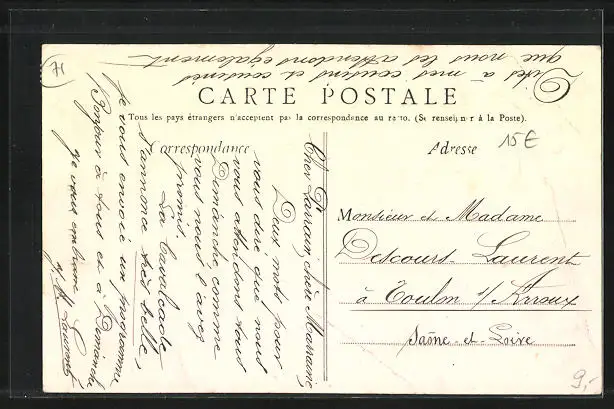 71
Dites à mes cousins et cousines
que nous les attendons également
CARTE POSTALE
Tous les pays étrangers n'acceptent pas la correspondance au recto. (Se renseigner à la Poste).
Correspondance
Adresse
15€
Cher Parrain, chère Marraine
Deux mots pour
vous dire que nous
vous attendons tous
Dimanche, comme
vous nous l'avez
promis.
La Cavalcade
s'annonce très belle,
je vous envoie un programme
Bonjour à tous et à Dimanche
je vous embrasse
Laurent
Monsieur et Madame
Descours-Laurent
à Toulon s/ Arroux
Saône-et-Loire
9,-